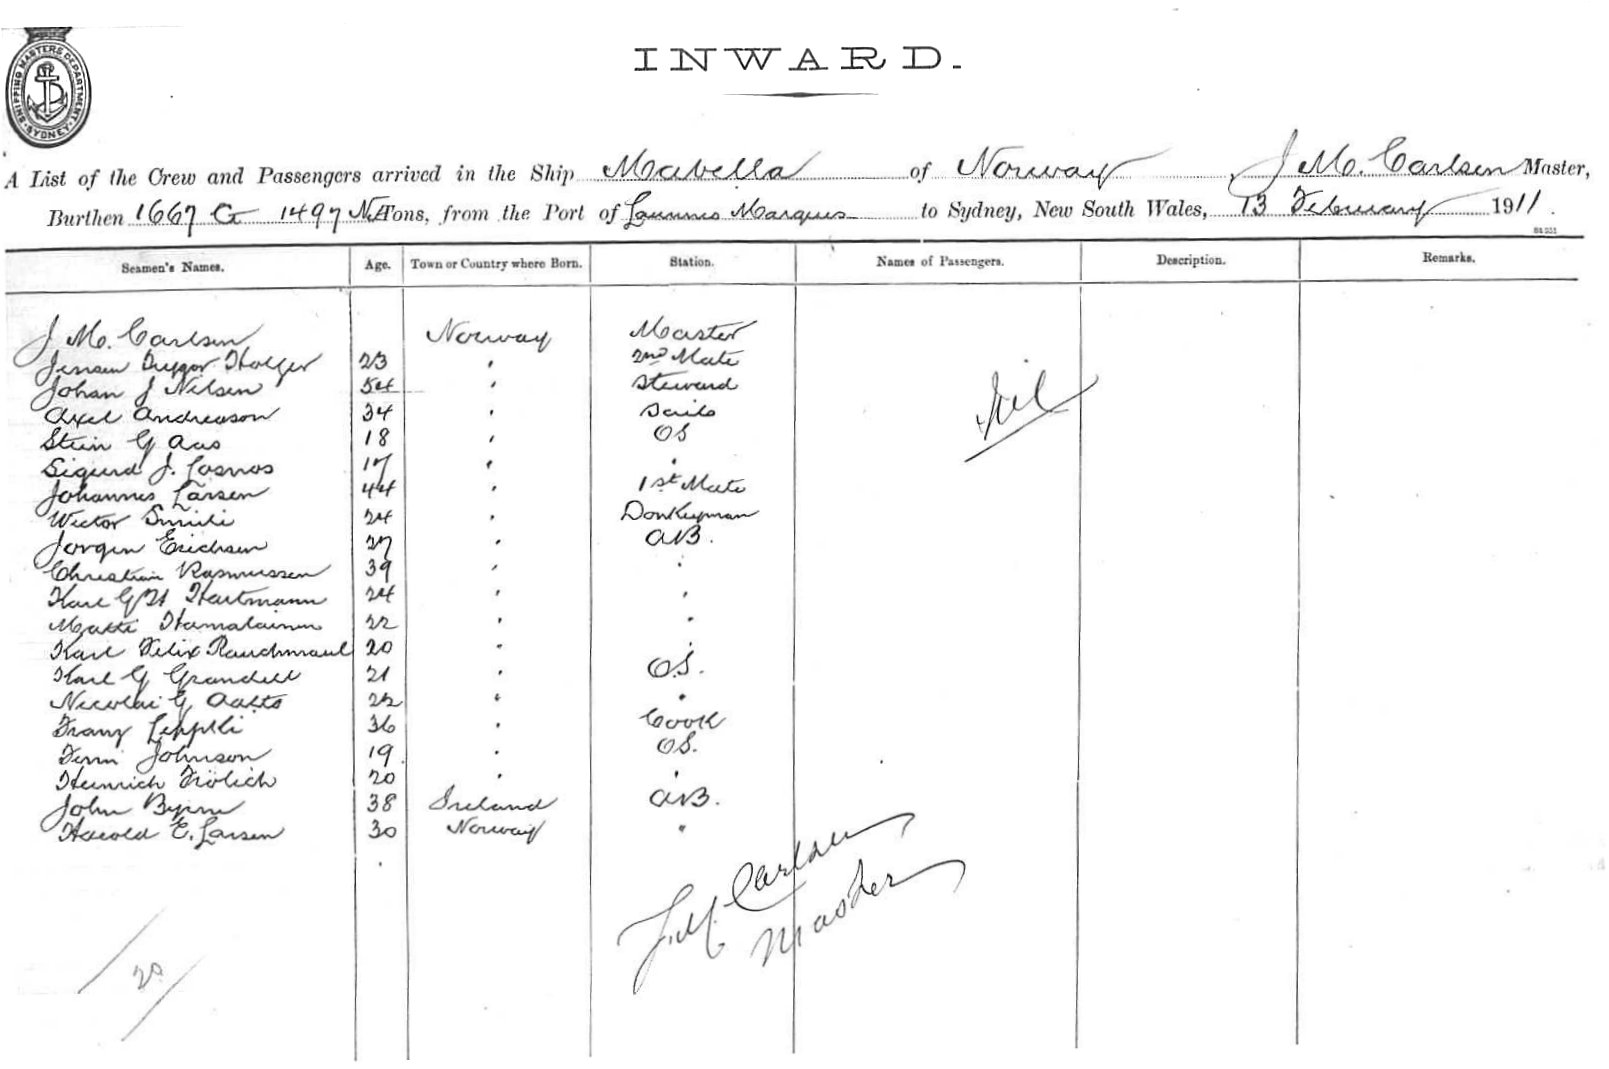 SHIPPING MASTERS DEPARTMENT SYDNEY
INWARD.
A List of the Crew and Passengers arrived in the Ship Mabella of Norway J M. Carlsen Master,
Burthen 1667 G 1497 N Tons, from the Port of Laurenco Marques to Sydney, New South Wales, 13 February 1911.
Seamen's Names. Age. Town or Country where Born. Station. Names of Passengers. Description. Remarks.
J M. Carlsen Norway Master
Jensen Holger 23 " 2nd Mate
Johan J Nilsen 54 " Steward
Axel Andreason 34 " Sails
Stein G Aas 18 " OS
Sigurd J. 17 " "
Johannes Larsen 44 " 1st Mate
Wictor 24 " Donkeyman
Jorgen Erichsen 27 " AB.
Christian Rasmussen 39 " "
Karl G H Hartmann 24 " "
Matti Hamalainen 22 " "
Karl Felix Rauchmaul 20 " "
Karl G Grandell 21 " O.S.
Nicolai G Aalto 22 " "
Franz 36 " Cook
Johnson 19 " OS.
Heinrich Frölich 20 " "
John Byrne 38 Ireland AB.
Harold E. Larsen 30 Norway "
Nil
J. M. Carlsen
Master
20